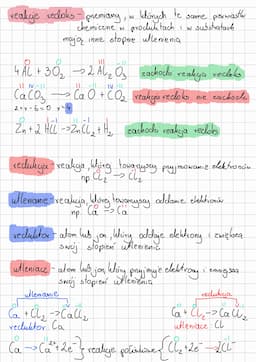 reakcje redoks - przemiany, w których te same pierwiastki
chemiczne w produktach i w substratach
mają inne stopnie utlenienia
0 0 III -II
4Al + 3O₂ → 2Al₂O₃ zachodzi reakcja redoks
II IV -II II -II IV -II
CaCO₃ → CaO + CO₂ reakcja redoks nie zachodzi
2+x-6=0 x=4
Zn + 2HCl → ZnCl₂ + H₂ zachodzi reakcja redoks
redukcja - reakcja, której towarzyszy przyjmowanie elektronów
np. Cl₂ → Cl
utlenianie - reakcja, której towarzyszy oddanie elektronów
np. Ca → Ca
reduktor - atom lub jon, który oddaje elektrony i zwiększa
swój stopień utlenienia
utleniacz - atom lub jon, który przyjmuje elektrony i zmniejsza
swój stopień utlenienia
utlenianie redukcja
Ca + Cl₂ → CaCl₂ Ca + Cl₂ → CaCl₂
reduktor: Ca utleniacz: Cl
Ca → Ca²⁺ + 2e⁻ } reakcje połówkowe { Cl₂ + 2e⁻ → 2Cl⁻